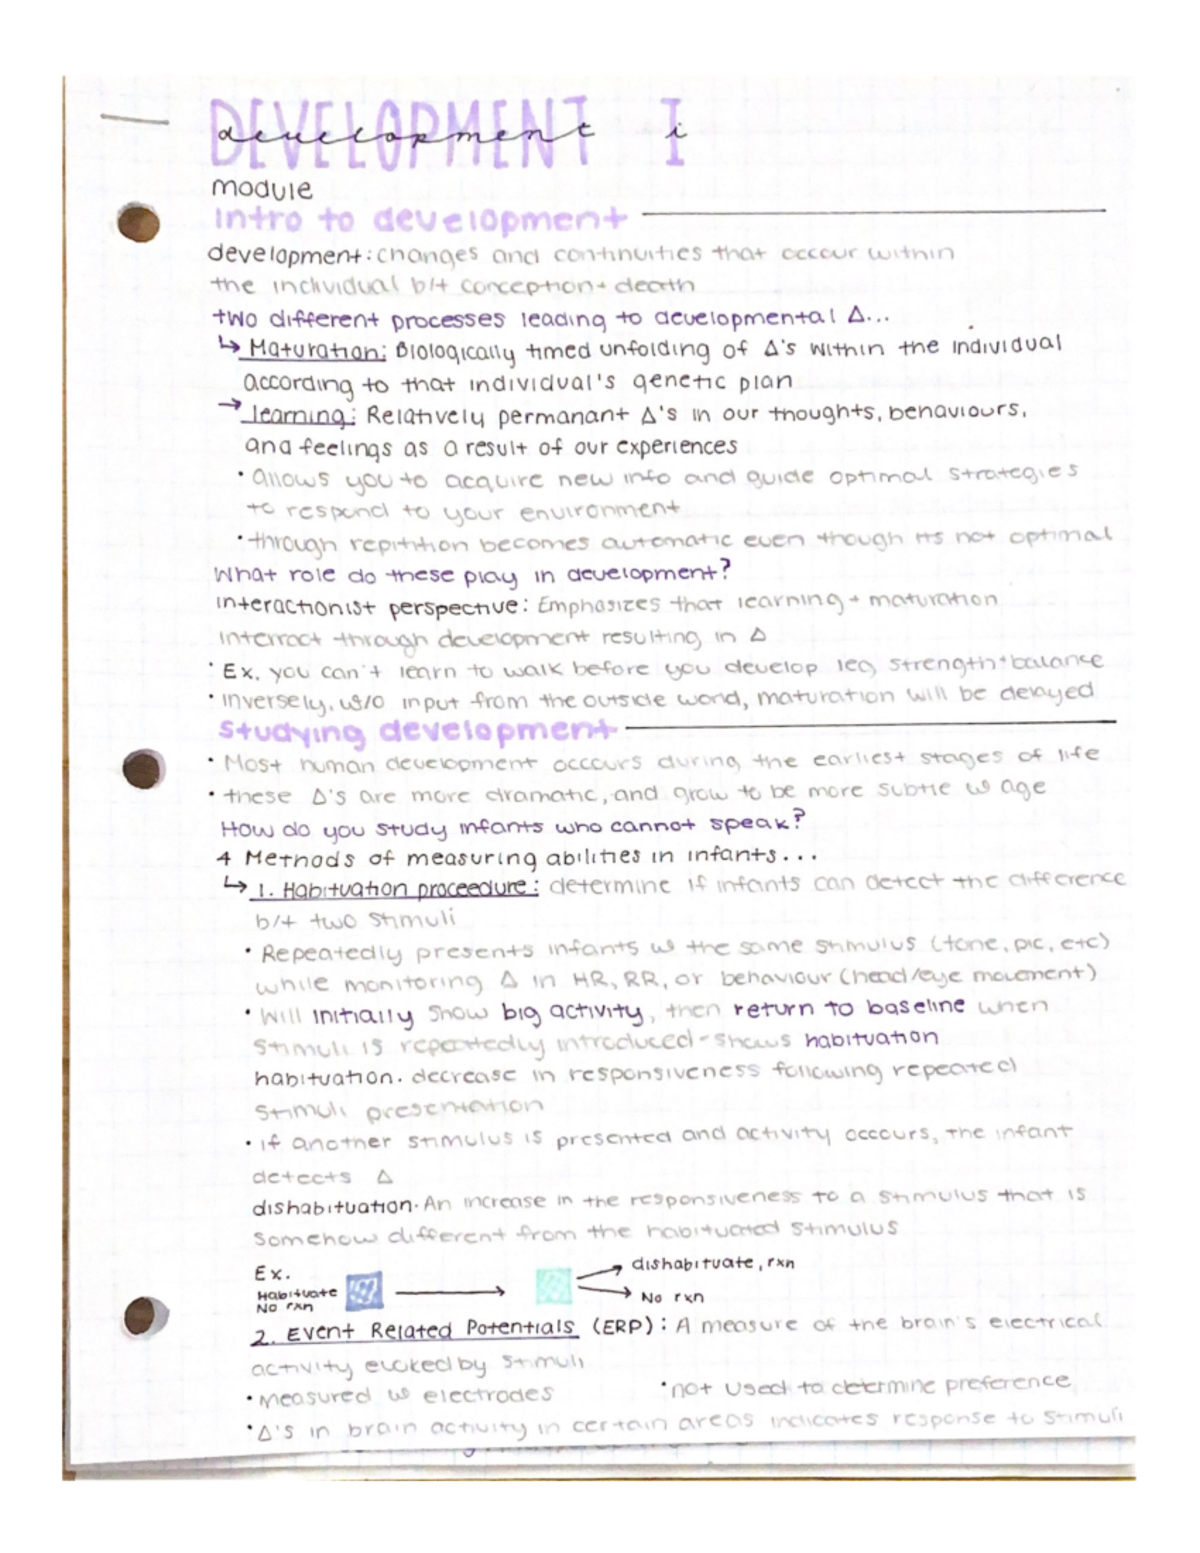 DEVELOPMENT I
development i
module
Intro to development
development: changes and continuities that occour within
the individual b/t conception + death
two different processes leading to developmental Δ...
↳ Maturation: Biologically timed unfolding of Δ's within the individual
according to that individual's genetic plan
→ learning: Relatively permanant Δ's in our thoughts, behaviours,
and feelings as a result of our experiences
• Allows you to acquire new info and guide optimal strategies
to respond to your environment
• through repitition becomes automatic even though its not optimal
What role do these play in development?
interactionist perspective: Emphasizes that learning + maturation
interract through development resulting in Δ
• Ex. you can't learn to walk before you develop leg strength + balance
• Inversely, w/o input from the outside world, maturation will be delayed
Studying development
• Most human development occours during the earliest stages of life
• these Δ's are more dramatic, and grow to be more subtle w age
How do you study infants who cannot speak?
4 Methods of measuring abilities in infants...
↳ 1. Habituation proceedure: determine if infants can detect the difference
b/t two stimuli
• Repeatedly presents infants w the same stimulus (tone, pic, etc)
while monitoring Δ in HR, RR, or behaviour (head/eye movement)
• Will initially show big activity, then return to baseline when
stimuli is repeatedly introduced - shows habituation
habituation. decrease in responsiveness following repeated
stimuli presentation
• if another stimulus is presented and activity occours, the infant
detects Δ
dishabituation. An increase in the responsiveness to a stimulus that is
somehow different from the habituated stimulus
Ex.
Habituate
No rxn
dishabituate, rxn
No rxn
2. Event Related Potentials (ERP): A measure of the brain's electrical
activity evoked by stimuli
• measured w electrodes • not used to determine preference
• Δ's in brain activity in certain areas indicates response to stimuli